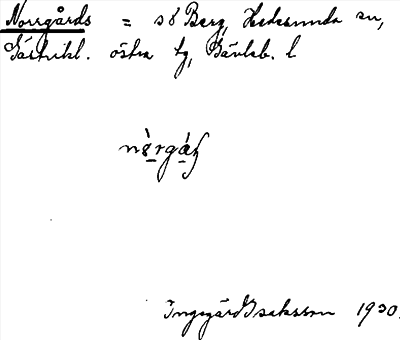 Norrgårds = s8 Berg, Hedesunda sn,
Gästrikl. östra tg, Gävleb. l
Ingegärd Isaksson 1930.